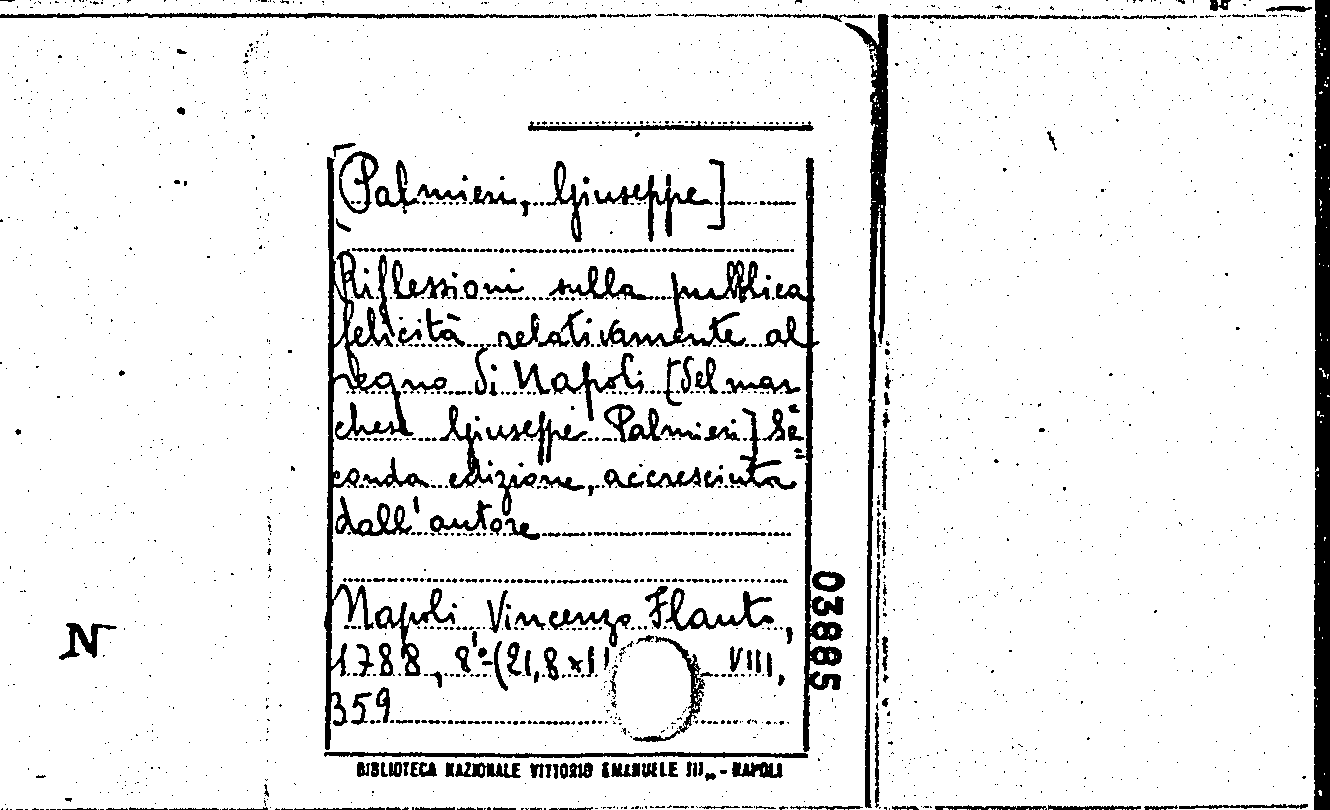 [Palmieri, Giuseppe]
Riflessioni sulla pubblica
felicità relativamente al
regno di Napoli [del mar
chese Giuseppe Palmieri] Se
conda edizione, accresciuta
dall'autore
Napoli, Vincenzo Flauto,
1788, 8°-(21,8x1 VIII,
359
03885
N
BIBLIOTECA NAZIONALE VITTORIO EMANUELE III„ - NAPOLI